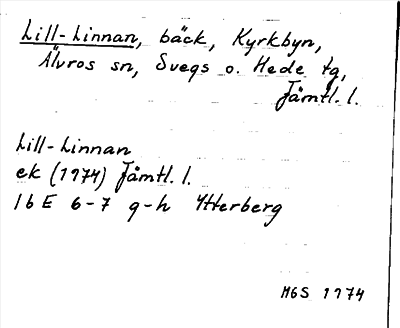 Lill-Linnan, bäck, Kyrkbyn,
Älvros sn, Svegs o. Hede tg,
Jämtl. l.
Lill-Linnan
ek (1974) Jämtl. l.
16 E 6-7 g-h Ytterberg
MGS 1974